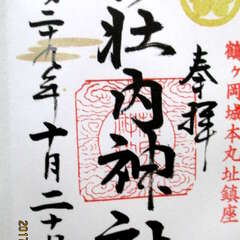 鶴ヶ岡城本丸址鎮座
奉拝
荘内神社
二十九年十月二十
201